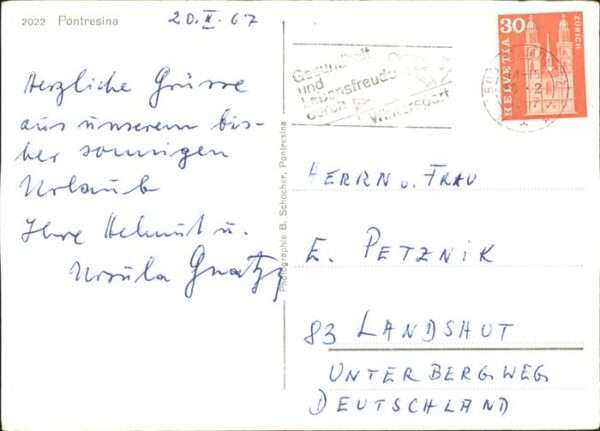 2022 Pontresina
20.II.67
Herzliche Grüsse
aus unserem bis-
her sonnigen
Urlaub
Ihre Helmut u.
Ursula
Photographie B. Schocher, Pontresina
Gesundheit
und
Lebensfreude
durch
Wintersport
30
HELVETIA
ZÜRICH
HERRN u. FRAU
E. PETZNIK
83 LANDSHUT
UNTERBERGWEG
DEUTSCHLAND